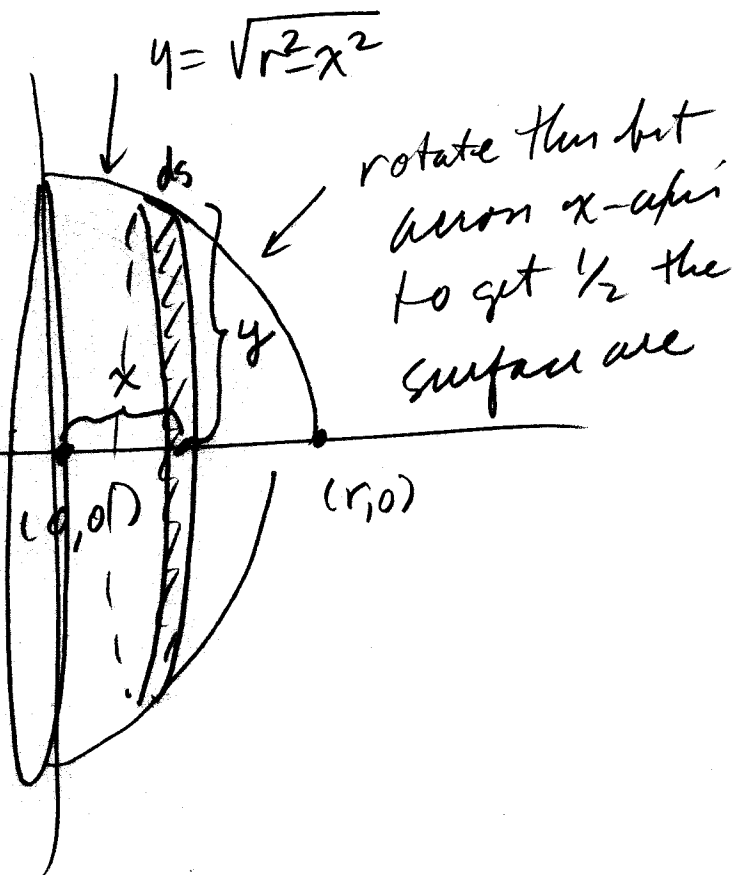 y = √r²-x²
ds
rotate this bit
across x-axis
to get 1/2 the
surface are
y
x
(0,0)
(r,0)